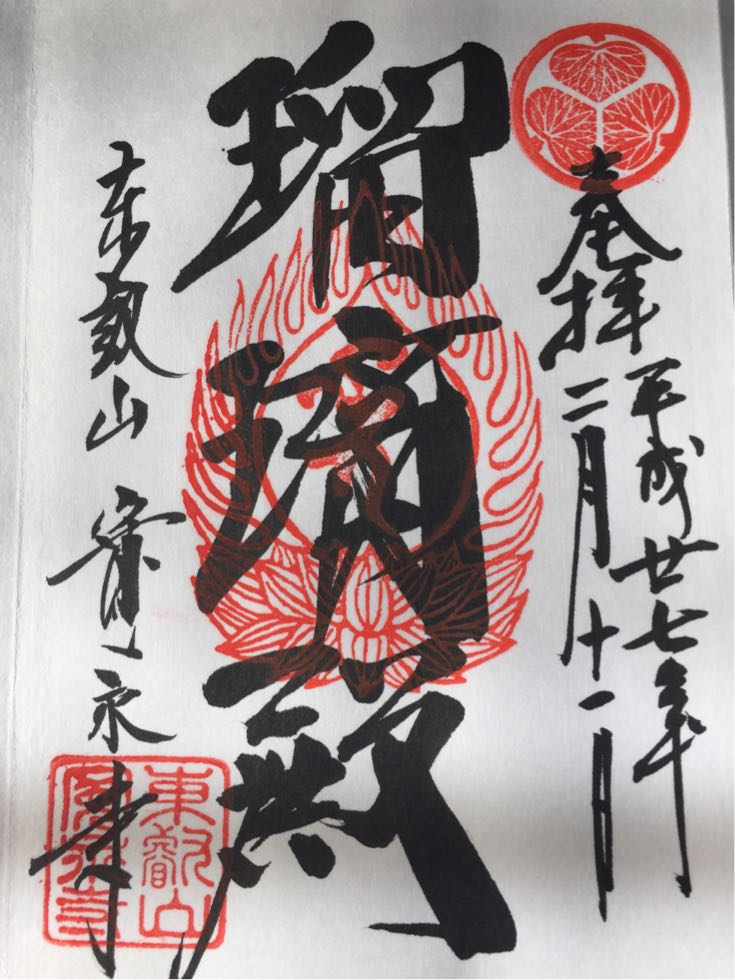 奉拝
平成廿七年
二月十一日
瑠璃殿
東叡山 寛永寺
東叡山
寛永寺